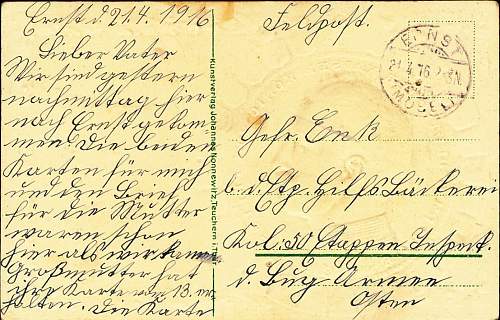 Ernst d. 21.4.1916
Lieber Vater
Wir sind gestern
nachmittag hier
nach Ernst gekom-
men. Die beiden
Karten für mich
und den Brief
für die Mutter
waren schon
hier als wir kamen
Großmutter hat
ihre Karte vom 13. er-
halten. Die Karte
Kunstverlag Johannes Nonnewitz, Teuchern i. Thür.
Feldpost.
ERNST
21.4.16
(MOSEL)
Gefr. Enk
b. d. Etp. Hilfs Bäckerei
Kol. 50 Etappen Inspekt.
d. Bug Armee
Osten